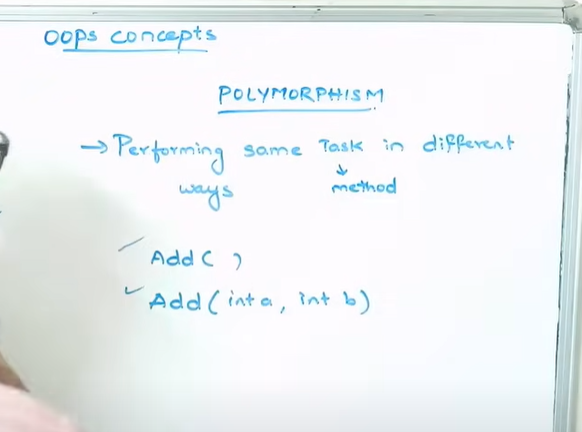 OOPS concepts
POLYMORPHISM
→ Performing same Task in different
ways ↓ method
Add( )
Add(int a, int b)